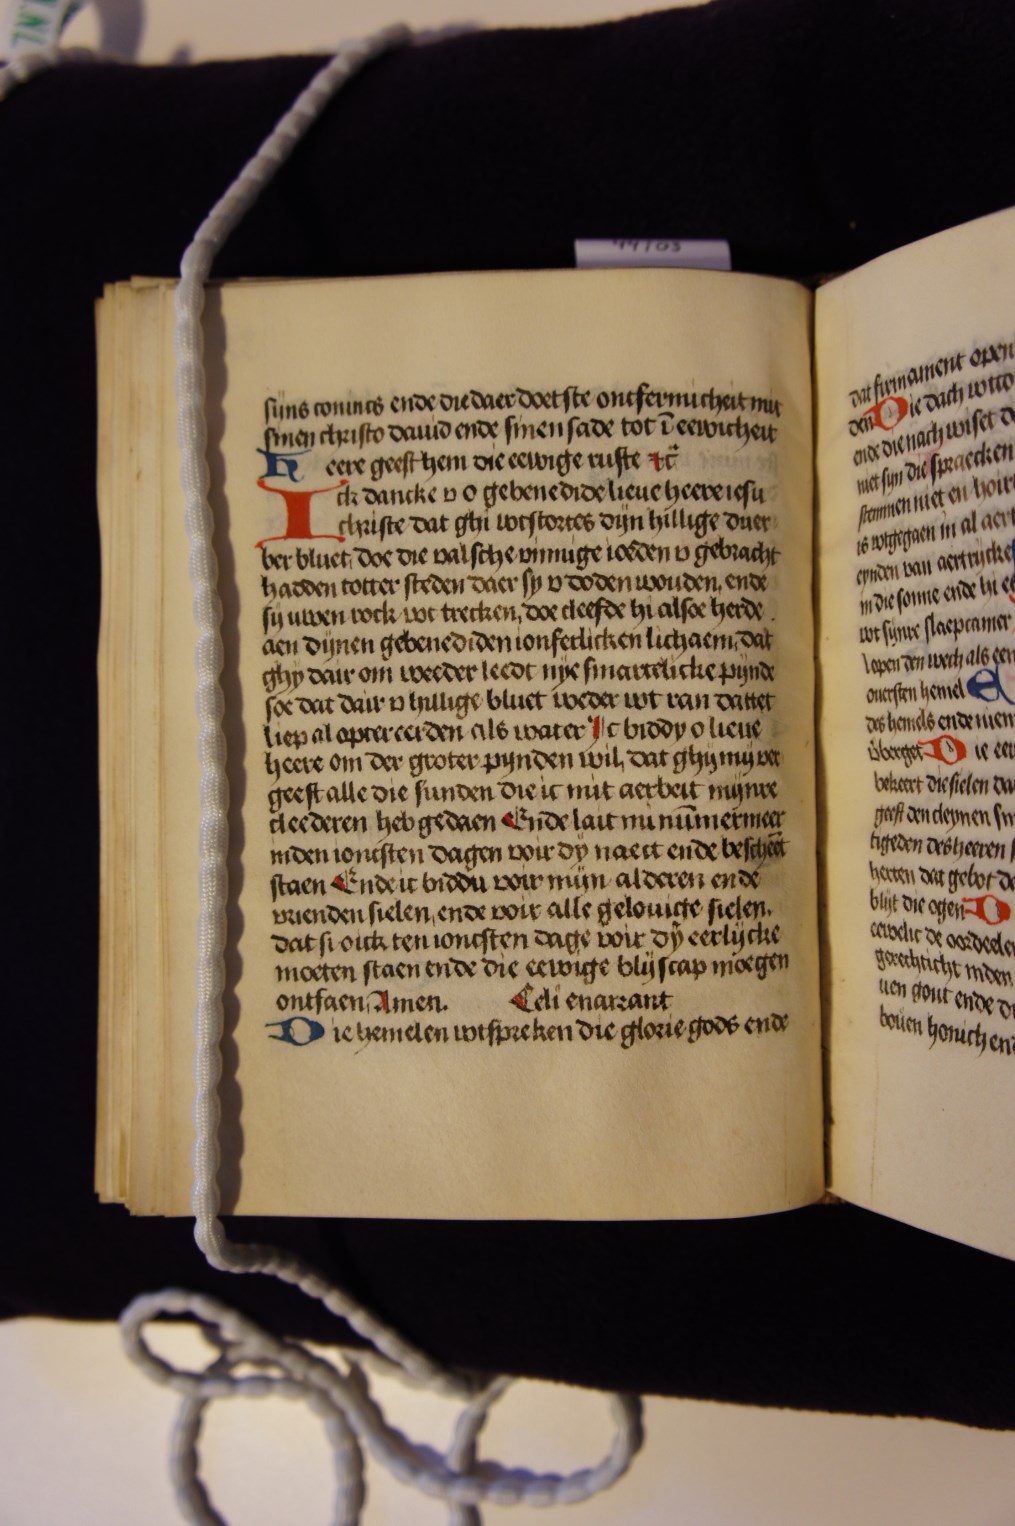 sijns conincs ende die daer doetste ontfermicheit mit
sinen christo dauid ende sinen sade tot ī eewicheit
Heere geeft hem die eewige ruste ⁊c̄
Ick dancke v o gebenedide lieue heere iesu
christe dat ghi wtstortes dijn hillige duer
ber bluet, doe die valsche vinnige ioeden v gebracht
hadden totter steden daer sy v doden wouden, ende
sij uwen rock wt trecken, doe cleefde hi alsoe herde
aen dijnen gebenediden ionferlicken lichaem, dat
ghy dair om weeder leedt nije smartelicke pijnde
soe dat dair v hillige bluet weder wt ran dattet
liep al opter eerden als water Ic biddy o lieue
heere om der groter pijnden wil, dat ghy mij ver
geeft alle die sunden die ic mit aerbeit mijnre
cleederen heb gedaen Ende lait mi nūmermeer
inden ioncsten dagen voir dy naect ende bescheēt
staen Ende ic biddu voir mijn alderen ende
vrienden sielen, ende voir alle gelouige sielen,
dat si oick ten ioncsten dage voir dȳ eerlijcke
moeten staen ende die eewige blijscap moegen
ontfaen Amen. Celi enarrant
Die hemelen wtspreken die glorie gods ende
dat firmament open
den Die dach wtto
ende die nach wiset d
niet sijn die spraecken
stemmen niet en hoir
is wtgegaen in al aert
eynden van aertrycke
in die sonne ende hi
wt synre slaepcamer
lopen den wech als een
ouersten hemel
des hemels ende niem
Die
bekeert die sielen da
geeft den cleynen
tigeden des heeren
heeren dat gebot
blijt die ogen D
eewelic de oordeele
gerechticht inden
uen gout ende
bouen honich en